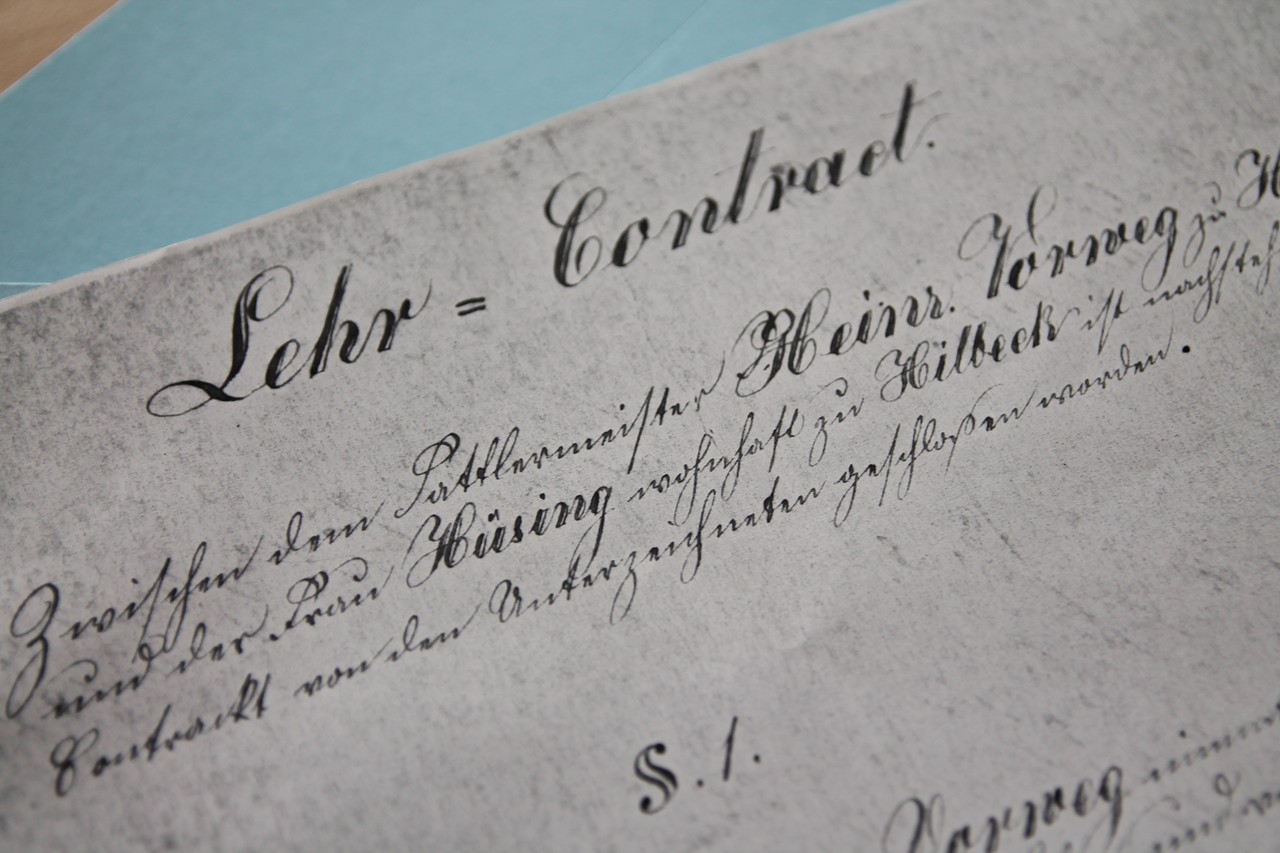 Lehr = Contract.
Zwischen dem Sattlermeister Heinr. Vorweg zu H
und der Frau Hüsing wohnhaft zu Hilbeck ist nachsteh
Contrackt von den Unterzeichneten geschloßen worden.
§. 1.
Vorweg nimmt
und